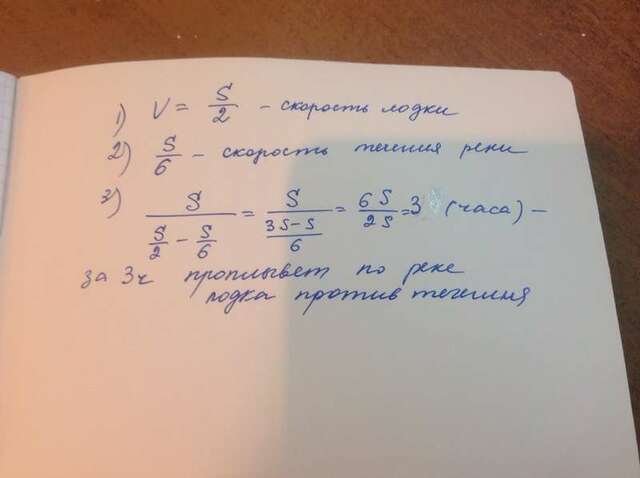 1) V = S/2 – скорость лодки
2) S/6 – скорость течения реки
3) S/(S/2 – S/6) = S/((3S–S)/6) = 6S/2S = 3 (часа) –
за 3ч проплывет по реке
лодка против течения